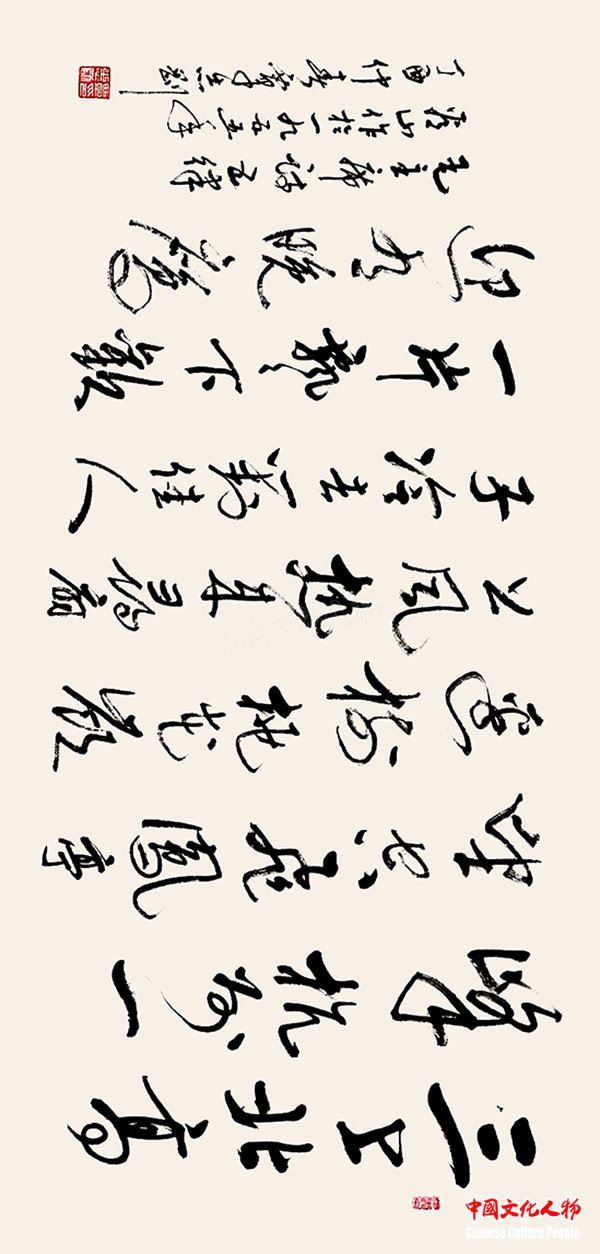 三上北高
峰杭州一
望空飛鳳亭
邊樹桃花嶺
上風熱來尋扇
子冷去對佳人
一片飄下歡
迎有晚鷹
毛主席詩五律
看山作於一九五五年
丁酉仲春
中國文化人物
Chinese Culture People